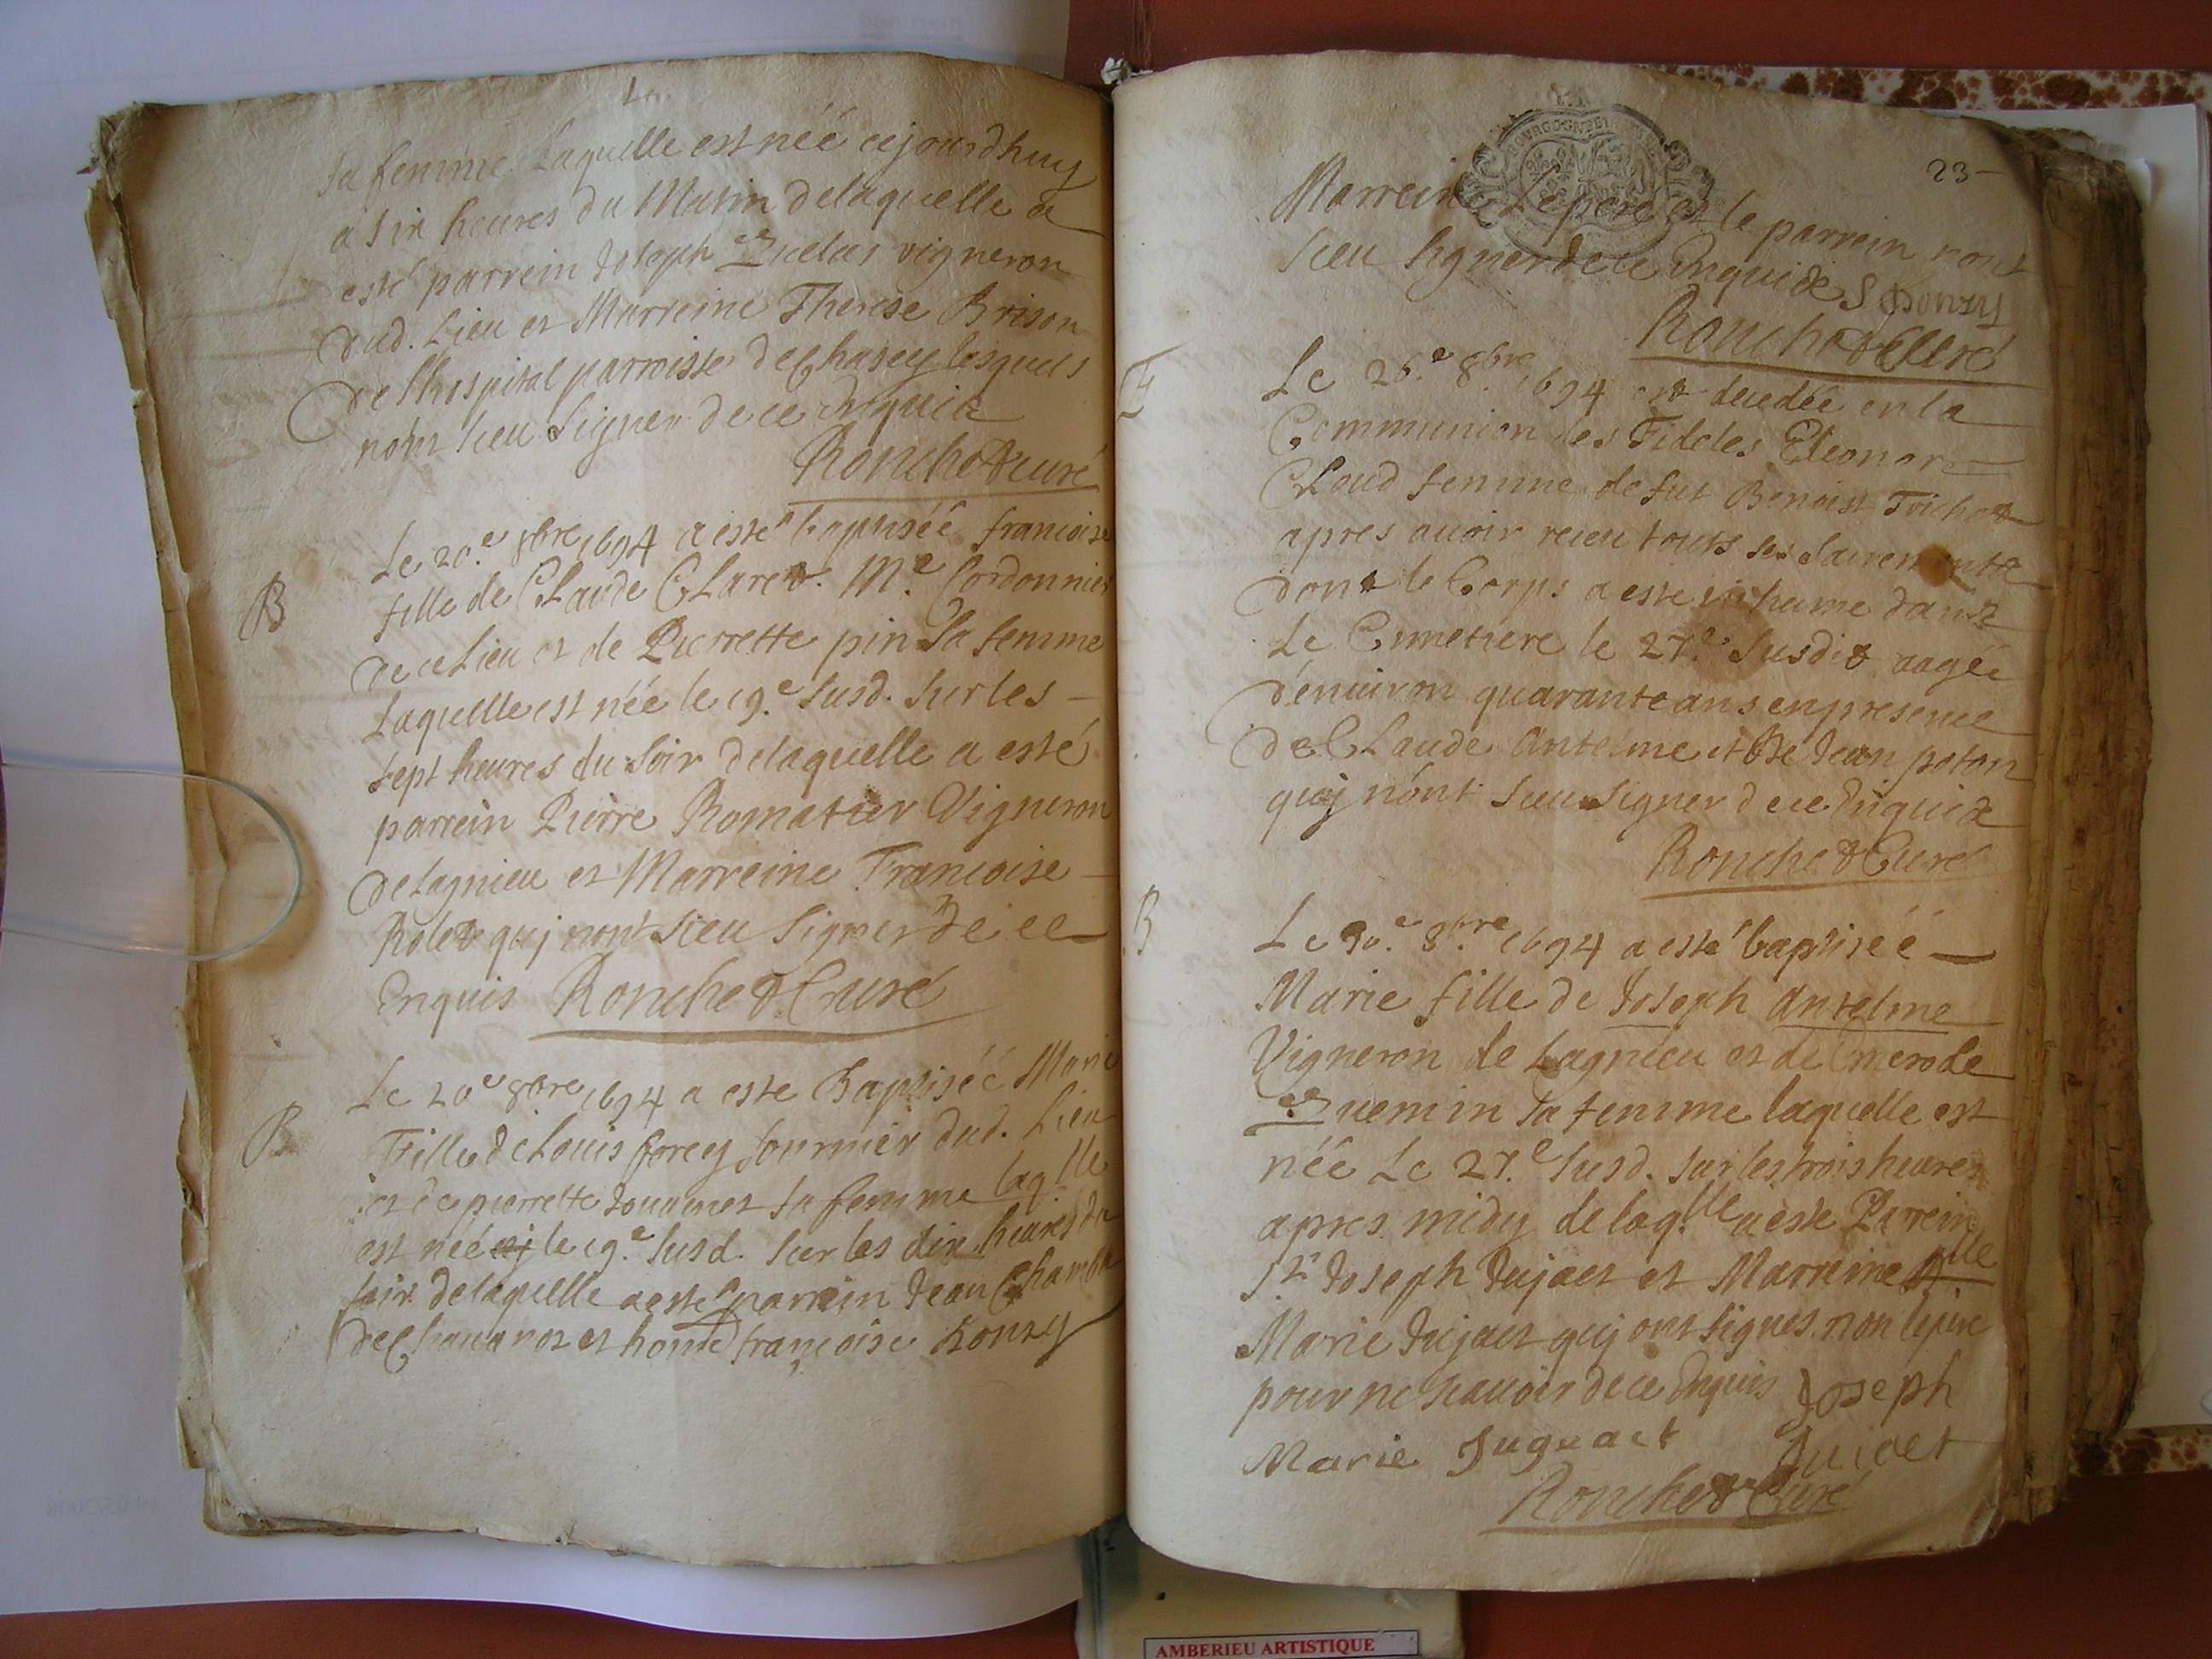 sa femme laquelle est néé cejourdhuy
a six heures du Matin delaquelle a
esté parrein Joseph vigneron
dud. Lieu et Marreine Therese Brison
de lhospital parroisse de Chasey lesquels
nont sceu signer de ce Enquis
Ronchet curé
B
Le 20.e 8bre 1694 a esté baptiséé francoise
fille de CLaude CLaret. M.e Cordonnier
de ce Lieu et de Pierrette pin sa femme
Laquelle est néé le 19.e susd. sur les
sept heures du soir delaquelle a esté
parrein Pierre Romatier Vigneron
de Lagnieu et Marreine Francoise
Rolet quj nont sceu signer de ce
Enquis Ronchet Curé
B
Le 20e 8bre 1694 a este Baptiséé Marie
Fille de Louis forey fournier dud. Lieu
et de pierrette sa femme laq.lle
est néé le 19.e susd. sur les dix heures du
soir delaquelle a esté parrein Jean
de Chauanos et françoise
23
Marreine Le pere et le parrein nont
sceu signer de ce Enquis
Ronchet Curé
Le 26.e 8bre 1694 est decedéé en la
Communion des Fideles Eleonor
CLoud femme de fut Benoist Trichot
apres auoir receu touts ses Sacrements
dont le Corps a esté inhume dans
Le Cimetiere le 27.e susdit aagéé
d'enuiron quarante ans en presence
de CLaude Antelme et de Jean poton
quj nont sceu signer de ce Enquis
Ronchet Curé
B
Le 30.e 8.bre 1694 a esté baptiséé
Marie fille de Joseph Antelme
Vigneron de Lagnieu et de
sa femme laquelle est
néé Le 27.e susd. sur les trois heures
apres midy de laq.lle a este Parrein
S.r Joseph Jujact et Marreine D.lle
Marie Jujact quj ont signés non le pere
pour ne scauoir de ce Enquis Joseph
Marie Jugeact Juiact
Ronchet Curé
AMBERIEU ARTISTIQUE